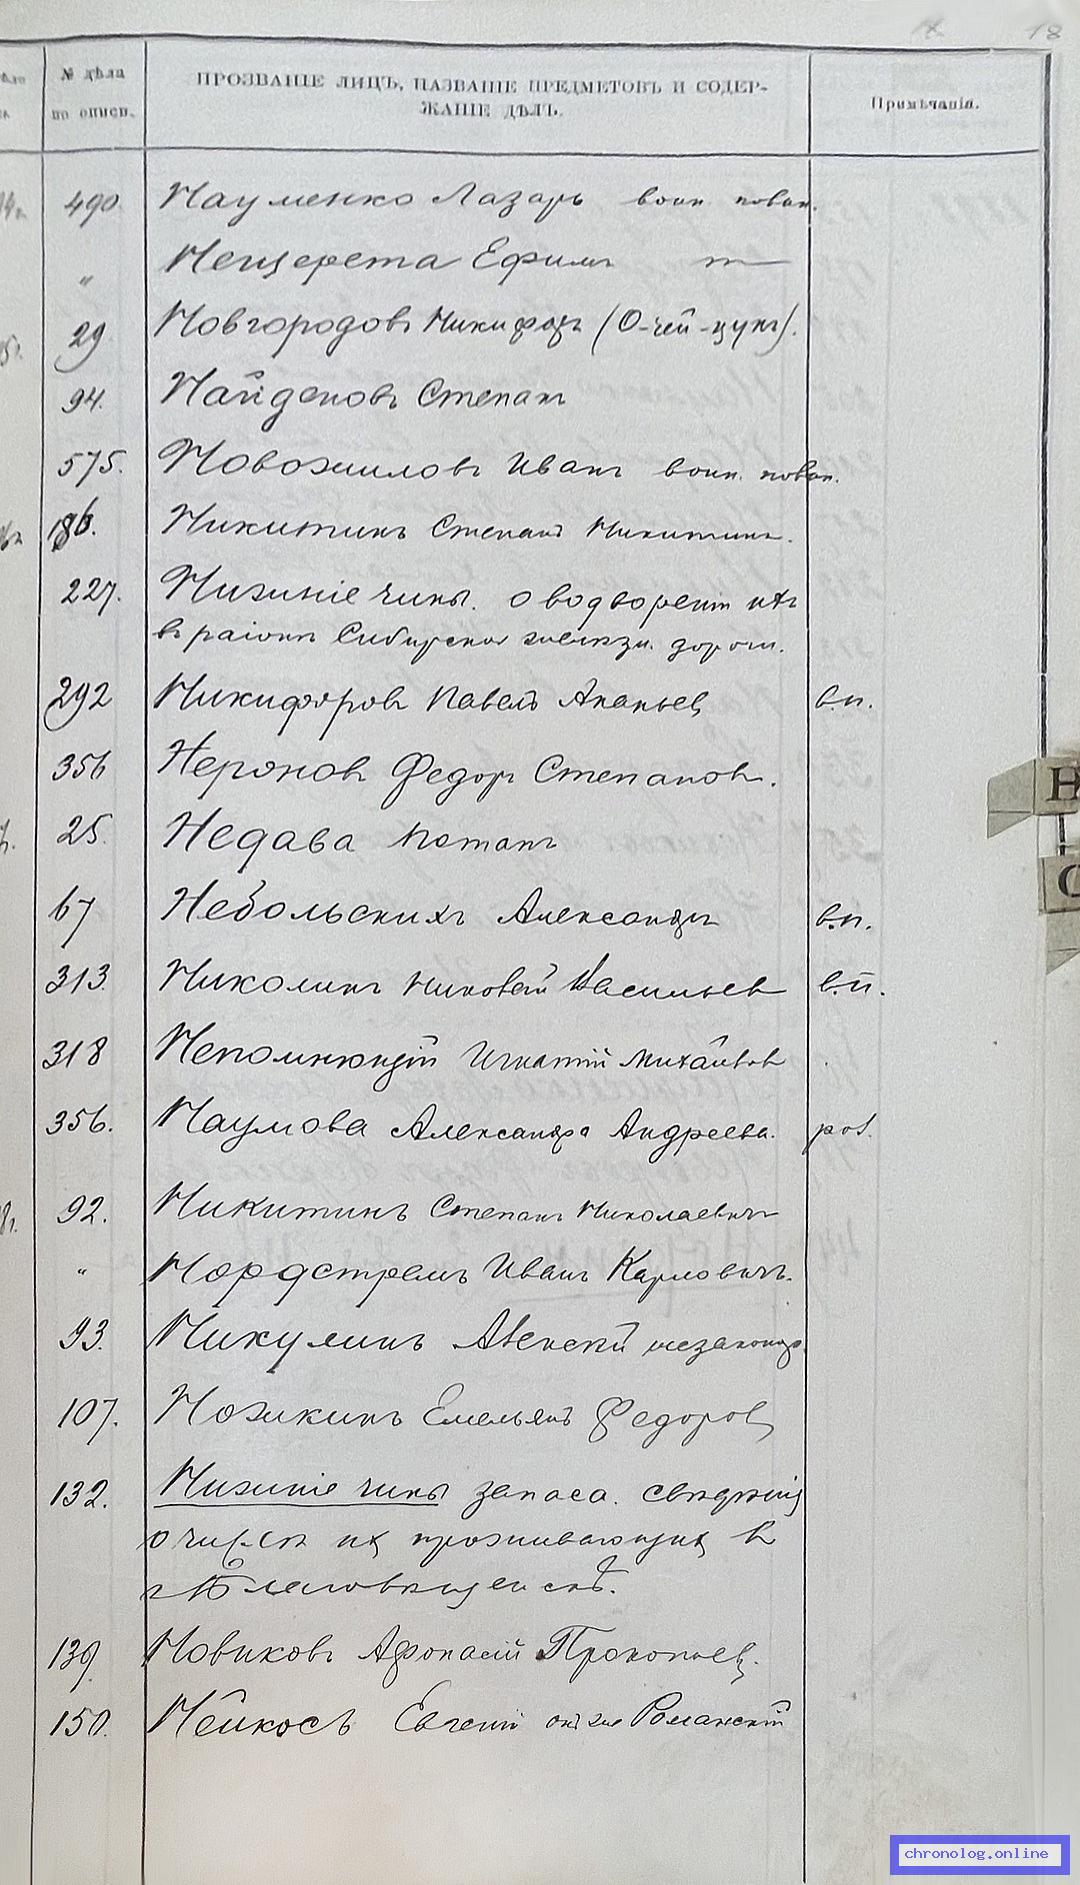 18
№ дѣла
по описи.
ПРОЗВАНІЕ ЛИЦЪ, НАЗВАНІЕ ПРЕДМЕТОВЪ И СОДЕР-
ЖАНІЕ ДѢЛЪ.
Примѣчанія.
490 Науменко Лазарь воин. повин.
" Нещерета Ефимъ
29 Новгородовъ Никифоръ (О-чей-цунъ).
94. Найденовъ Степанъ
575. Новожиловъ Иванъ воин. повин.
186. Никитинъ Степанъ Никитинъ.
227. Нижніе чины. о водвореніи ихъ
въ раіонѣ Сибирской желѣзн. дороги.
292 Никифоровъ Павелъ Ананьев в.п.
356 Неронов Федоръ Степанов.
25. Недава Потапъ
67 Небольскихъ Александръ в.п.
313. Николинъ Васильев в.п.
318 Непомнющій Игнатій Михайлов
356. Наумова Александра Андреева.
92. Никитинъ Степанъ Николаевичъ
" Нордстремъ Иванъ Карловичъ.
93. Никулинъ незаконнор.
107. Ножкинъ Емельянъ Федоров
132. Нижніе чины запаса. свѣдѣнія
о числѣ их проживающих в
г. Благовѣщенскѣ.
139. Новиковъ Афонасій Прокопьев.
150. Нейкосъ Евгеній Романскій
Н
С
chronolog.online